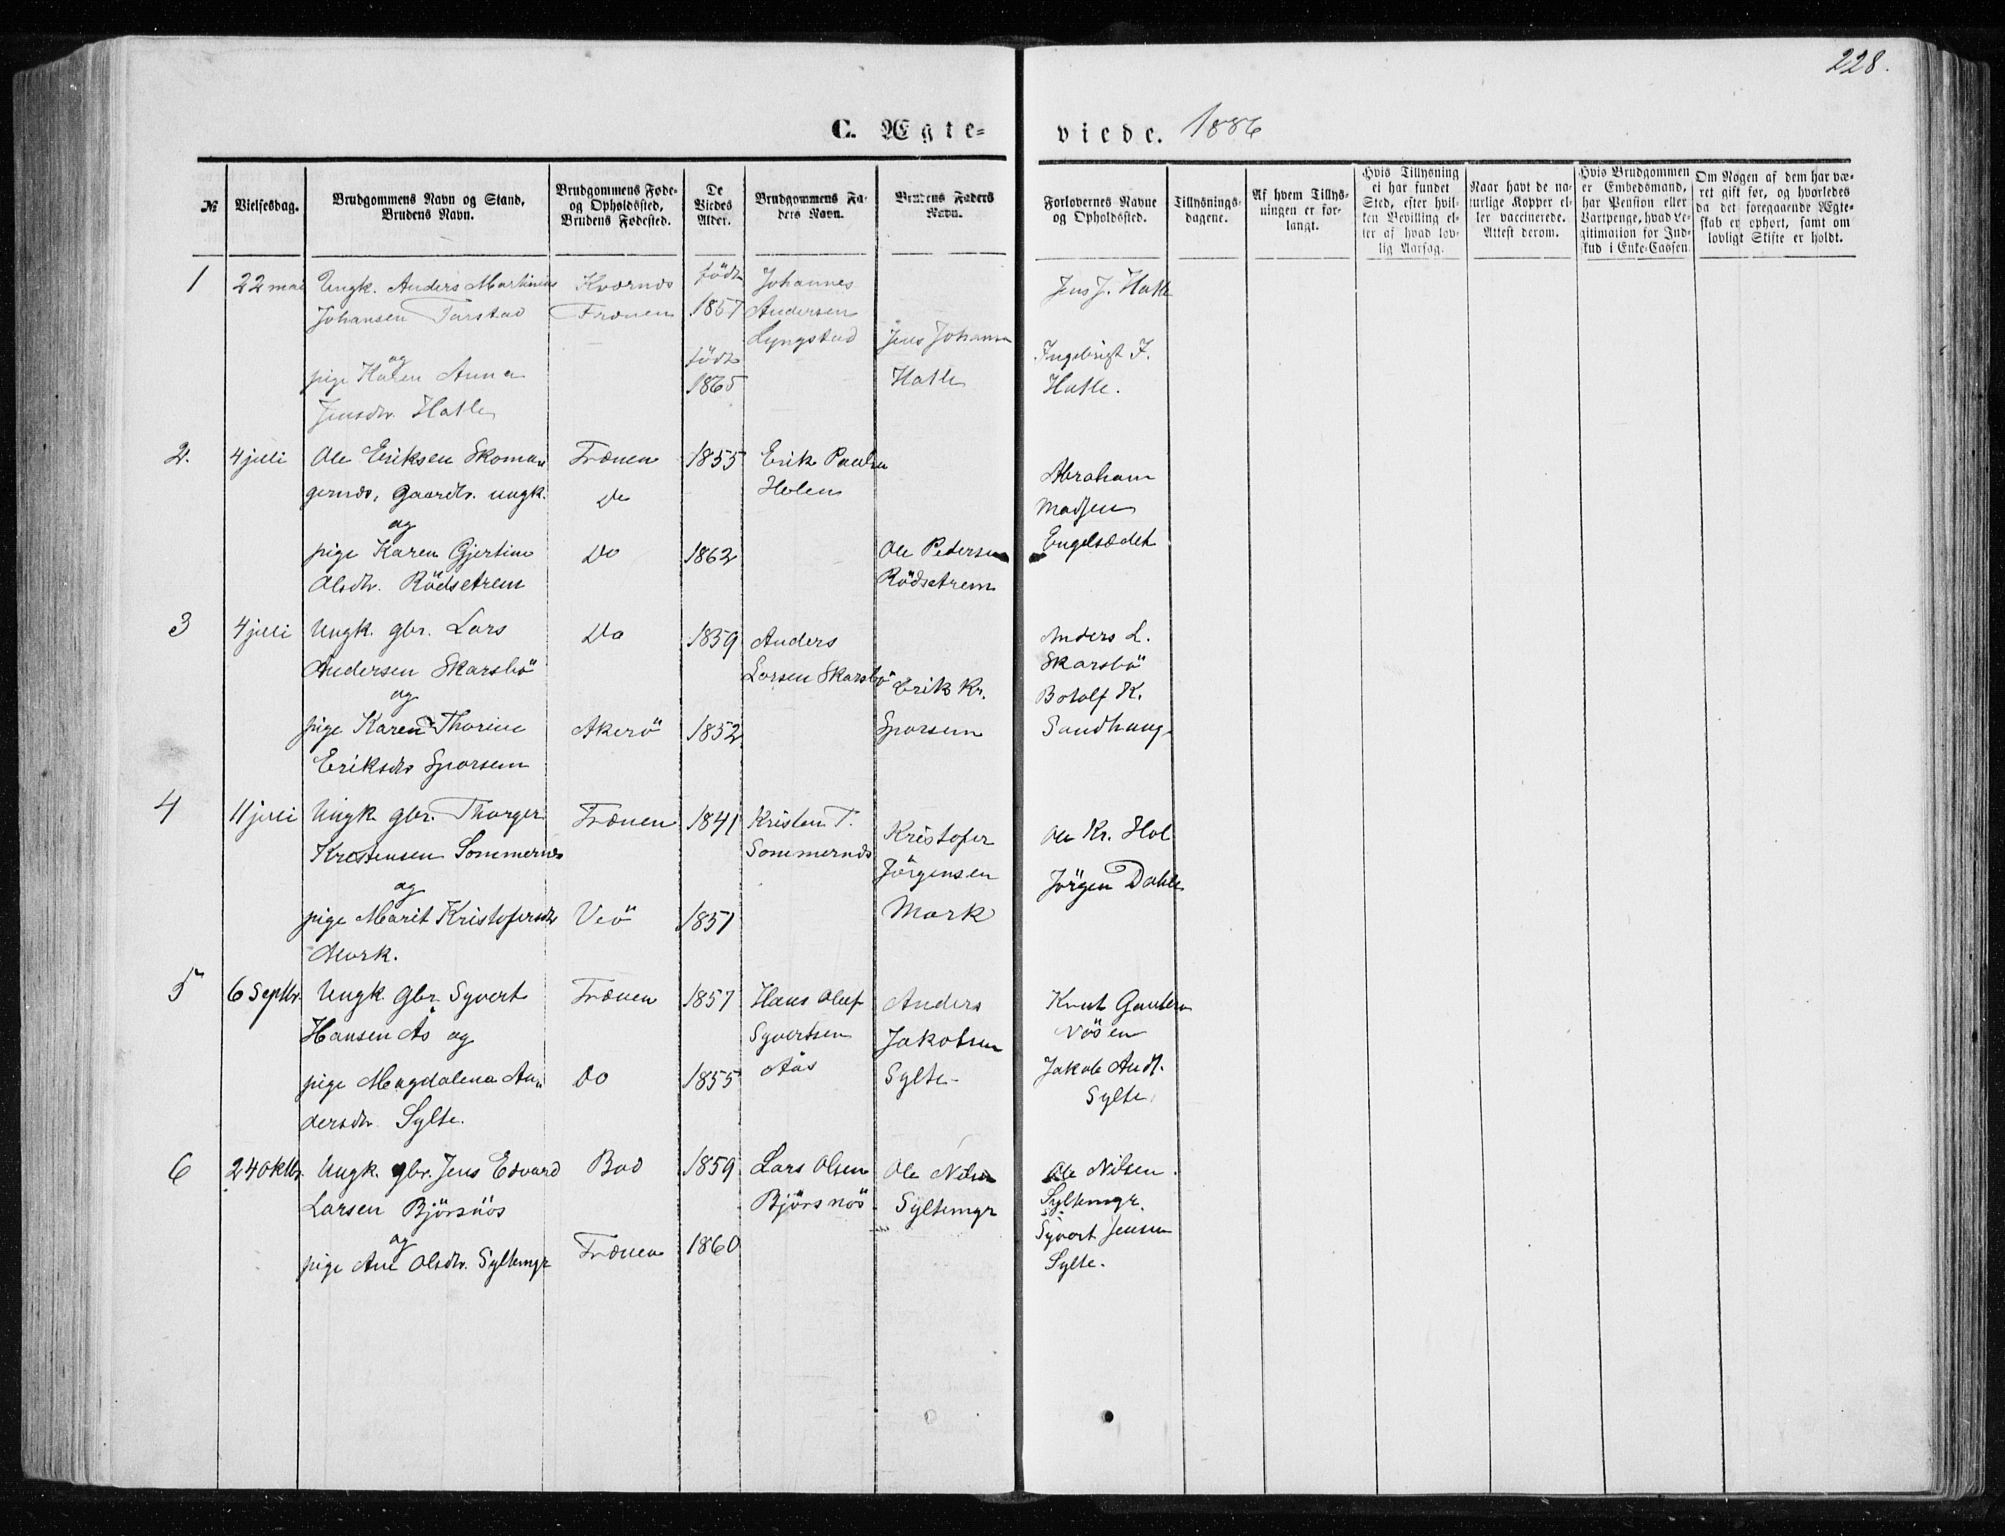 228.
C. Ægte-
viede. 1886
№
Vielsesdag.
Brudgommens Navn og Stand,
Brudens Navn.
Brudgommens Føde-
og Opholdssted,
Brudens Fødested.
De
Viedes
Alder.
Brudgommens Fa-
ders Navn.
Brudens Faders
Navn.
Forlovernes Navne
og Opholdssted.
Tillysnings-
dagene.
Af hvem Tillys-
ningen er for-
langt.
Hvis Tillysning
ei har fundet
Sted, efter hvil-
ken Bevilling el-
ler af hvad lov-
lig Aarsag.
Naar havt de na-
turlige Kopper el-
ler vaccinerede.
Attest derom.
Hvis Brudgommen
er Embedsmand,
har Pension eller
Vartpenge, hvad Le-
gitimation for Ind-
skud i Enke-Cassen.
Om Nogen af dem har væ-
ret gift før, og hvorledes
da det foregaaende Ægte-
skab er ophørt, samt om
lovligt Skifte er holdt.
1
22 mai
Ungk. Anders Martinius
Johansen Tarstad
og
pige Karen Anna
Jensdtr. Hatle
Kværnæs
Frænen
født
1857
født
1865
Johannes
Andersen
Lyngstad
Jens Johansen
Hatle
Jens J. Hatle
Ingebrigt J.
Hatle.
2.
4 juli
Ole Eriksen Skoma-
gernæs, Gaardbr. ungk.
og
pige Karen Gjertine
Olsdtr. Rödsetrem
Frænen
Do
Do
1855
1862
Erik Paulsen
Holen
Ole Pedersen
Rödsetrem
Abraham
Madsen
Engelsædet
3
4 juli
Ungk. gbr. Lars
Andersen Skarsbö
og
pige Karen Thorine
Eriksdtr Sporsem
Do
Akerö
1859
1852
Anders
Larsen Skarsbö
Erik Kr.
Sporsem
Anders L.
Skarsbö
Botolf K.
Sandhaug
4
11 juli
Ungk. gbr. Thorger
Kristensen Sommernæs
og
pige Marit Kristofersdtr
Mork.
Frænen
Veö
1841
1851
Kristen T.
Sommernæs
Kristofer
Jörgensen
Mork
Ole Kr. Hol
Jörgen Dahle
5
6 Septbr.
Ungk. Gbr. Syvert
Hansen Ås og
pige Magdalena An-
dersdtr. Sylte.
Frænen
Do
1857
1855
Hans Oluf
Syvertsen
Aas
Anders
Jakobsen
Sylte
Knut Gautesen
Nösen
Jakob And.
Sylte
6
24 Oktbr.
Ungk. gbr. Jens Edvard
Larsen Björsnös
og
pige Ane Olsdtr. Syltemgr
Bud
Frænen
1859
1860
Lars Olsen
Björsnös
Ole Nilsen
Syltemgr
Ole Nilsen
Syltemgr.
Syvert Jensen
Sylte.